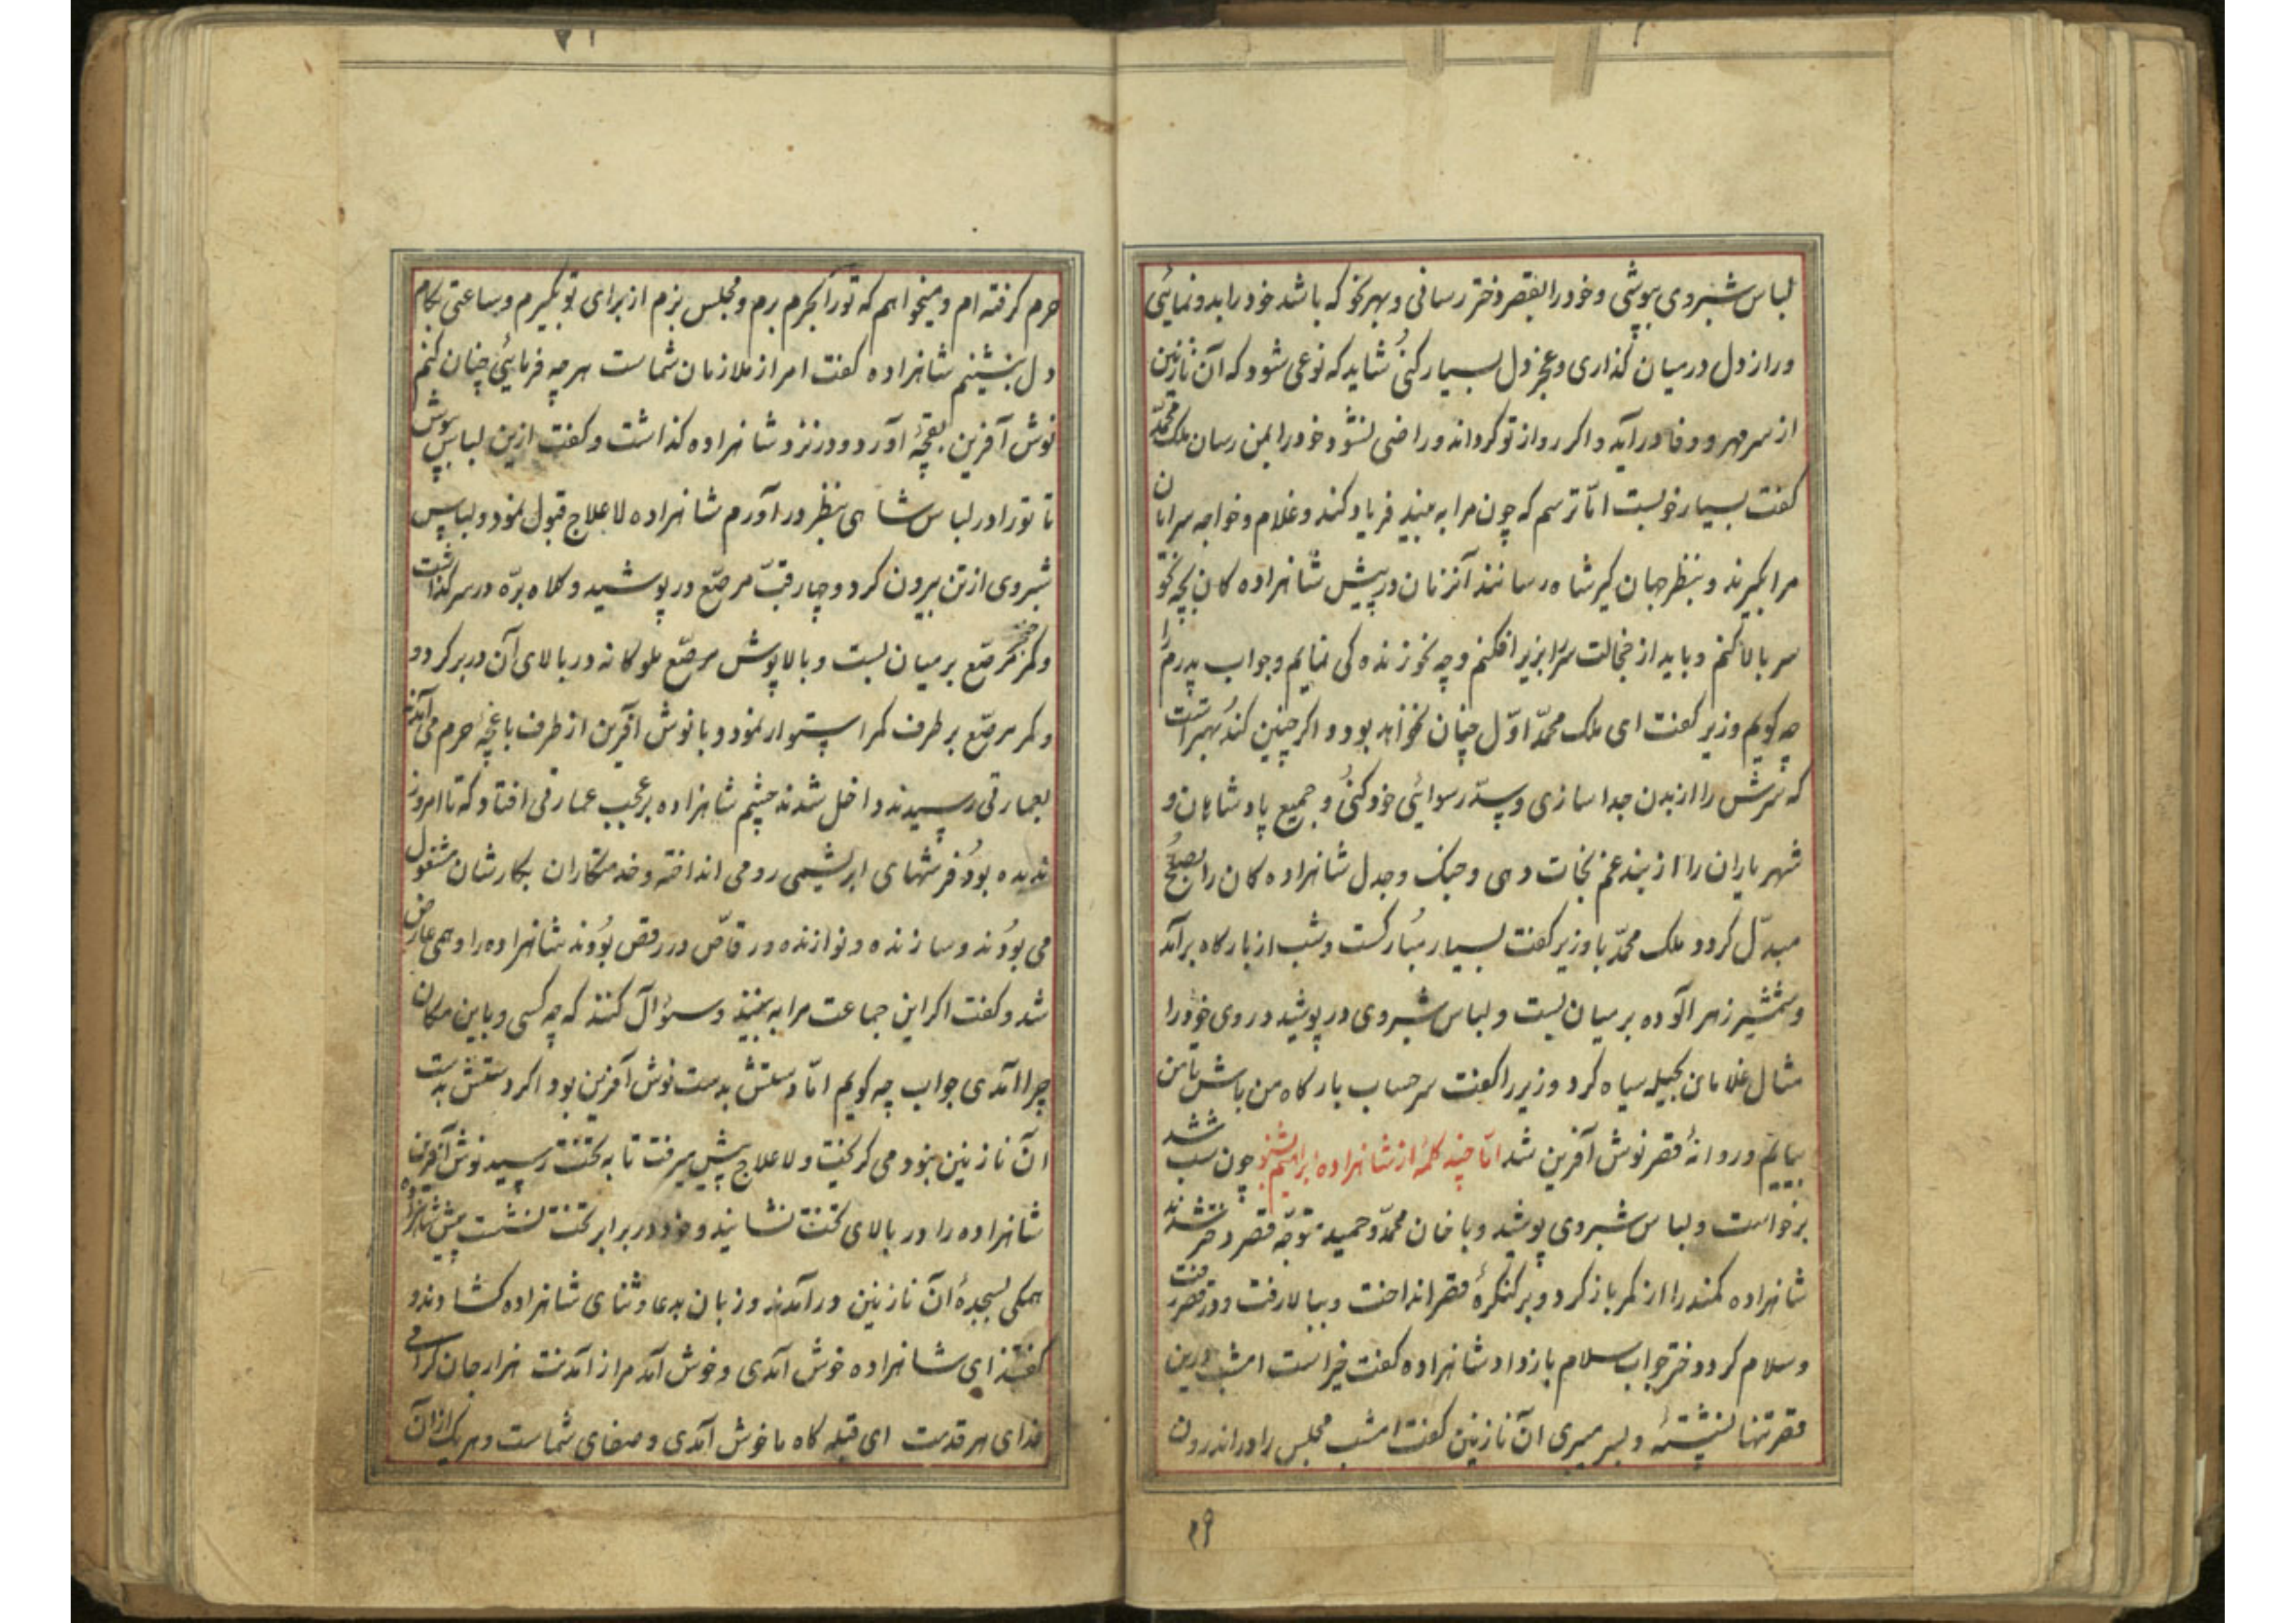 لباس شبروی بپوشی و خود را بقصر دختر رسانی و بهر نحو که باشد خود را بدو نمائی
و راز دل در میان گذاری و عجز دل بسیار کنی شاید که نوعی شود که آن نازنین
از سر مهر و وفا درآید و اگر رو از تو گرداند و راضی نشود خود را بمن رسان ملک محمد
گفت بسیار خوبست اما ترسم که چون مرا به بیند فریاد کند و غلام و خواجه سرایان
مرا بگیرند و بنظر جهان گیر شاه رسانند آنزمان در پیش شاهزاده کان بچه نحو
سر بالا کنم و باید از خجالت سر را بزیر افکنم و چه نحو زنده کی نمایم و جواب پدرم را
چه گویم وزیر گفت ای ملک محمد اول چنان نخواهد بود و اگر چنین کند بهتر است
که سرش را از بدن جدا سازی و سد رسوائی خود کنی و جمیع پادشاهان و
شهریاران را از بند غم نجات دهی و جنک و جدل شاهزاده کان را بصلح
مبدل گردد ملک محمد با وزیر گفت بسیار مبارکست و شب از بارگاه برآمد
و شمشیر زهر آلوده بر میان بست و لباس شبروی در پوشید و روی خود را
مثال غلامان بحیله سیاه کرد و وزیر را گفت سر حساب بارگاه من باش تا من
بیایم و روانهٔ قصر نوش آفرین شد اما چند کلمه از شاهزاده ابراهیم بشنو چون شب شد
برخواست و لباس شبروی پوشید و با خان محمد و حمید متوجه قصر دختر شدند
شاهزاده کمند را از کمر باز کرد و بر کنگرهٔ قصر انداخت و ببالا رفت و در قصر رفت
و سلام کرد دختر جواب سلام باز داد شاهزاده گفت خیر است امشب درین
قصر تنها نشستهٔ و بسر میبری آن نازنین گفت امشب مجلس را در اندرون
۲۹
حرم گرفته ام و میخواهم که تو را بحرم برم و مجلس بزم از برای تو بگیرم و ساعتی بکام
دل بنشینم شاهزاده گفت امر از ملازمان شماست هر چه فرمائی چنان کنم
نوش آفرین بقچهٔ آورد و در نزد شاهزاده گذاشت و گفت ازین لباس بپوش
تا تو را در لباس شاهی بنظر در آورم شاهزاده لاعلاج قبول نمود و لباس
شبروی از تن بیرون کرد و چارقب مرصع در پوشید و کلاه بره در سر گذاشت
و کمر خنجر مرصع بر میان بست و بالاپوش مرصع ملوکانه در بالای آن در بر کرد و
و کمر مرصع بر طرف کمر استوار نمود و با نوش آفرین از طرف باغچهٔ حرم می آمدند
بعمارتی رسیدند داخل شدند چشم شاهزاده بر عجب عمارتی افتاد که تا امروز
ندیده بود فرشهای ابریشمی رومی انداخته و خدمتکاران بکارشان مشغول
می بودند و سازنده و نوازنده و رقاص در رقص بودند شاهزاده را وهمی عارض
شد و گفت اگر این جماعت مرا به بینند و سؤال کنند که چه کسی و باین مکان
چرا آمدی جواب چه گویم اما دستش بدست نوش آفرین بود اگر دستش بدست
آن نازنین نبود می گریخت و لاعلاج پیش میرفت تا به تخت رسید نوش آفرین
شاهزاده را در بالای تخت نشانید و خود در برابر تخت نشست پیش شاهزاده
همکی بسجدهٔ آن نازنین درآمدند و زبان بدعا و ثنای شاهزاده گشادند و
گفتند ای شاهزاده خوش آمدی و خوش آمد مرا ز آمدنت هزار جان گرامی
فدای هر قدمت ای قبله گاه ما خوش آمدی و صفای شماست و هر یک از آن